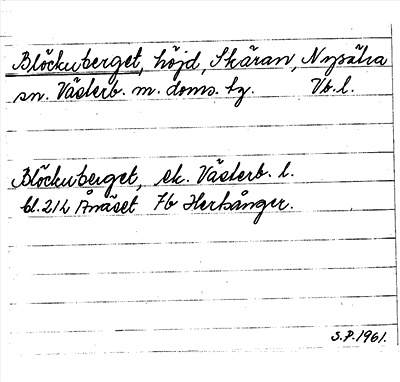 Blöckuberget, höjd, Skäran, Nysätra
sn. Västerb. m. doms. tg. Vb. l.
Blöckuberget, ek. Västerb. l.
bl. 21 L Ånäset 7b Herkånger.
S.P. 1961.